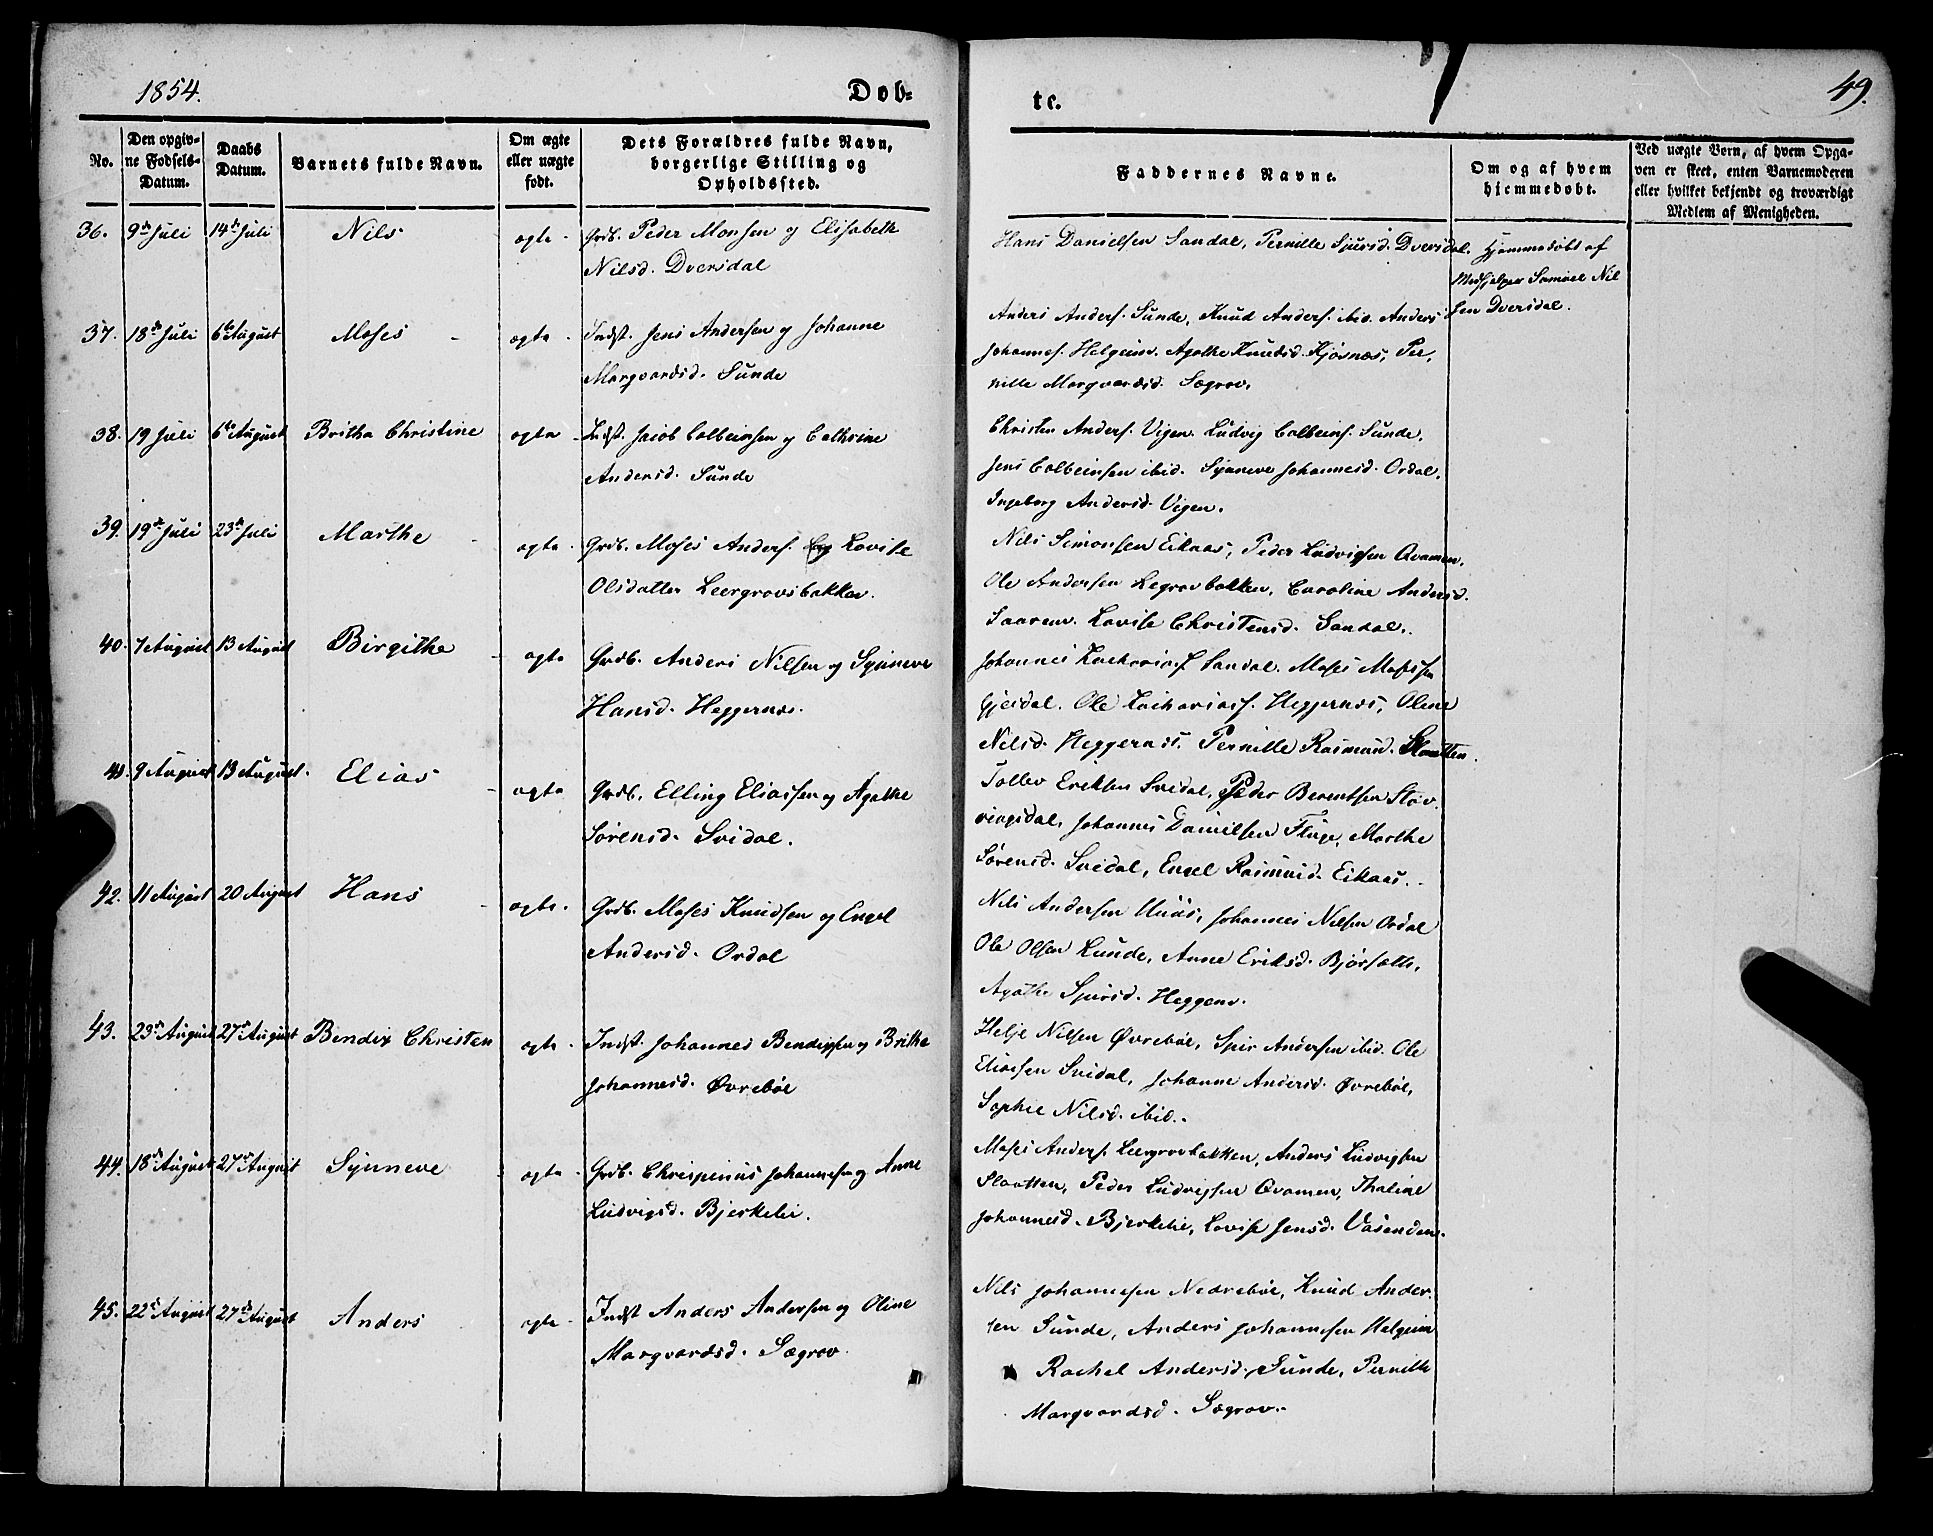 1854.
Døb-
te.
49.
No.
Den opgiv-
ne Fødsels-
Datum.
Daabs
Datum.
Barnets fulde Navn.
Om ægte
eller uægte
født.
Dets Forældres fulde Navn,
borgerlige Stilling og
Opholdssted.
Faddernes Navne.
Om og af hvem
hjemmedøbt.
Ved uægte Børn, af hvem Opga-
ven er skeet, enten Barnemoderen
eller hvilket bekjendt og troværdigt
Medlem af Menigheden.
36. 9de Juli 14de Juli Nils ægte Grdb. Peder Monsen og Elisabeth
Nilsd. Dversdal
Hans Danielsen Sandal, Pernille Sjursd. Dversdal.
Hjemmedøbt af
Medhjelper Samuel Nil
sen Dversdal.
37. 18de Juli 6te August Moses ægte Indst. Jens Andersen og Johanne
Margvardsd. Sunde
Anders Anders. Sunde, Knud Anders. ibid. Anders
Johannes. Helgeim. Agathe Knudsd. Kjøsnæs, Per-
nille Margvardsd. Sægrov.
38. 19 Juli 6te August Britha Christine ægte Indst. Jacob Colbeinsen og Cathrine
Andersd. Sunde
Christen Anders. Vigen. Ludvig Colbeins. Sunde,
Jens Colbeinsen ibid. Synneve Johannesd. Ordal.
Ingeborg Andersd. Vigen.
39. 19de Juli 23de Juli Marthe ægte Grdb. Moses Anders. og Lovise
Olsdatter Leergrovsbakken.
Nils Simonsen Eikaas, Peder Ludvigsen Qvamen,
Ole Andersen Legrovbakken, Caroline Andersd.
Lovise Christensd. Sandal.
40. 7 August 13 August Birgithe ægte Grdb. Anders Nilsen og Synneve
Hansd. Heggernæs.
Johannes Zachariass. Sandal. Moses Mosessen
Gjesdal. Ole Zachariass. Heggernæs, Oline
Nilsd. Heggernæs. Pernille Rasmusd. Slaatten.
41. 9 August 13 August. Elias ægte Grdb. Elling Eliassen og Agathe
Sørensd. Svidal.
Tollev Eriksen Svidal, Peder Berentsen Støv-
ringsdal, Johannes Danielsen Fluge, Marthe
Sørensd. Svidal, Engel Rasmusd. Eikaas.
42. 11 August 20 August Hans ægte Grdb. Moses Knudsen og Engel
Andersd. Ordal
Nils Andersen Huus, Johannes Nilsen Ordal
Ole Olsen Lunde, Anne Eriksd. Bjørsæth,
Agathe Sjursd. Heggene.
43. 23de August 27de August Bendix Christen ægte Indst. Johannes Bendixsen og Brithe
Johannesd. Øvrebøe
Helje Nilsen Øvrebøe, Andersen ibid. Ole
Eliassen Svidal, Johanne Andersd. Øvrebøe,
Sophie Nilsd. ibid.
44. 18de August 27de August Synneve ægte Grdb. Chrispinus Johannesen og Anne
Ludvigsd. Bjerkelie.
Moses Anders. Leergrovbakken, Anders Ludvigsen
Slaatten, Peder Ludvigsen Qvamen, Thaline
Johannesd. Bjerkelie, Lovise Jensd. Vasenden.
45. 22de August 27de August Anders ægte Indst Anders Andersen og Oline
Margvardsd. Sægrov.
Nils Johannesen Nedrebøe, Knud Ander-
sen Sunde, Anders Johannesen Helgeim
Rachel Andersd. Sunde, Pernille
Margvardsd. Sægrov.